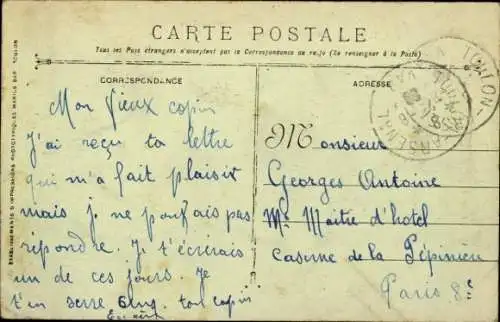 CARTE POSTALE
Tous les Pays étrangers n'acceptent pas la Correspondance au recto (Se renseigner à la Poste)
CORRESPONDANCE
ADRESSE
Mon vieux copin
J'ai reçu ta lettre
qui m'a fait plaisir
mais je ne pouvais pas
répondre. Je t'écrirais
un de ces jours. Je
t'en serre ton copin
Monsieur
Georges Antoine
Maitre d'hotel
Caserne de la Pépinière
Paris 8e
TOULON
ARSENAL
VAR